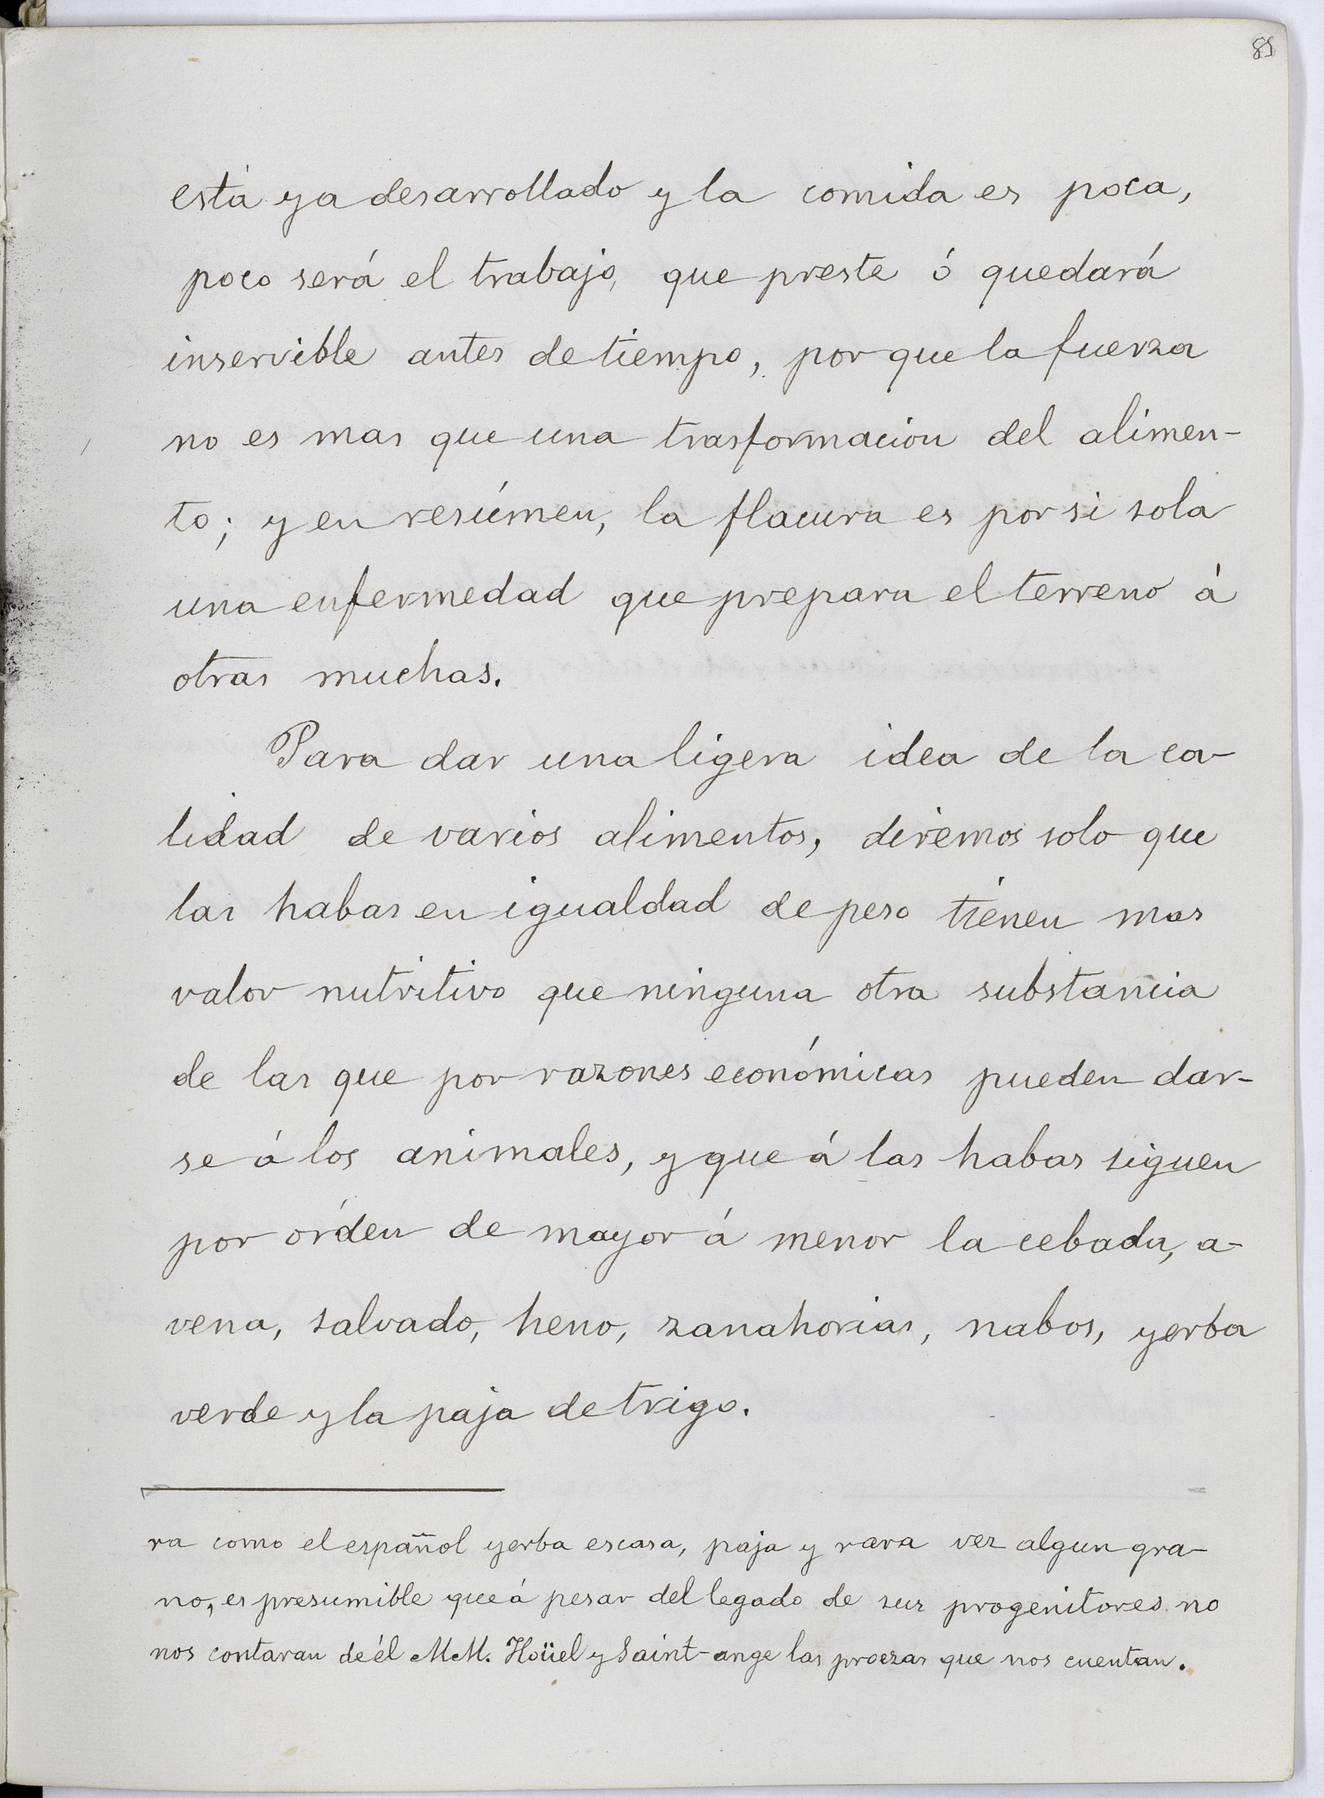 85
está ya desarrollado y la comida es poca,
poco será el trabajo, que preste ó quedará
inservible antes de tiempo, por que la fuerza
no es mas que una trasformacion del alimen-
to; y en resúmen, la flacura es por si sola
una enfermedad que prepara el terreno á
otras muchas.
Para dar una ligera idea de la ca-
lidad de varios alimentos, diremos solo que
las habas en igualdad de peso tienen mas
valor nutritivo que ninguna otra substancia
de las que por razones económicas pueden dar-
se á los animales, y que á las habas siguen
por órden de mayor á menor la cebada, a-
vena, salvado, heno, zanahorias, nabos, yerba
verde y la paja de trigo.
ra como el español yerba escasa, paja y rara vez algun gra-
no, es presumible que á pesar del legado de sus progenitores no
nos contaran de él MM. Hoüel y Saint-ange las proezas que nos cuentan.